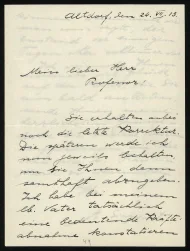 Altdorf, den 24. VI. 13.
Mein lieber Herr
Professor!
Sie erhalten anbei
noch die letzte Korrektur.
Die späteren werde ich
nun jeweils behalten
um Sie Ihnen dann
abzugeben.
Ich habe bei meinem
lb. Vater tatsächlich
eine bedeutende Kräfte-
abnahme konstatieren